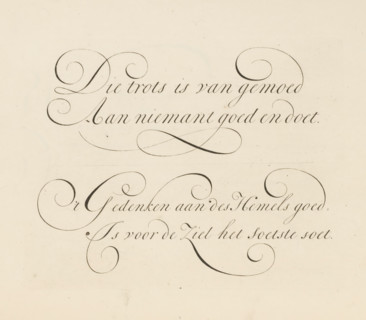 Die trots is van gemoed
Aan niemant goed en doet.
't Gedenken aan des Hemels goed.
Is voor de Ziel het soetste soet.